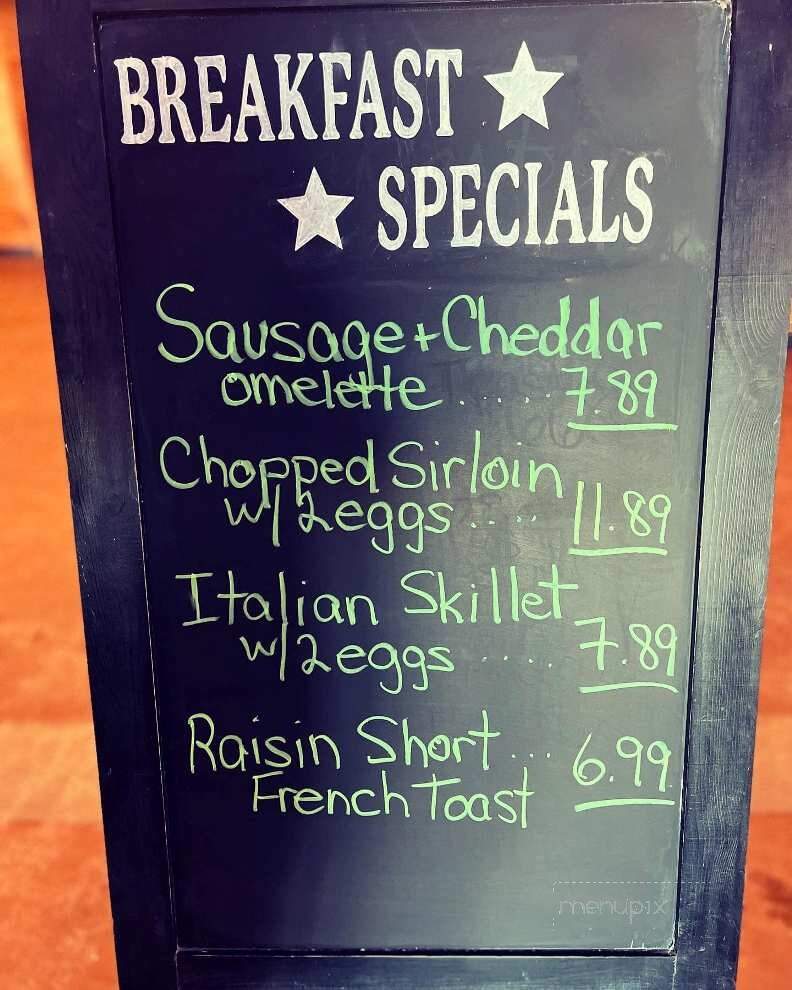 BREAKFAST
SPECIALS
Sausage + Cheddar
omelette ...... 7.89
Chopped Sirloin
w/ 2 eggs .... 11.89
Italian Skillet
w/ 2 eggs ..... 7.89
Raisin Short ... 6.99
French Toast
menupix